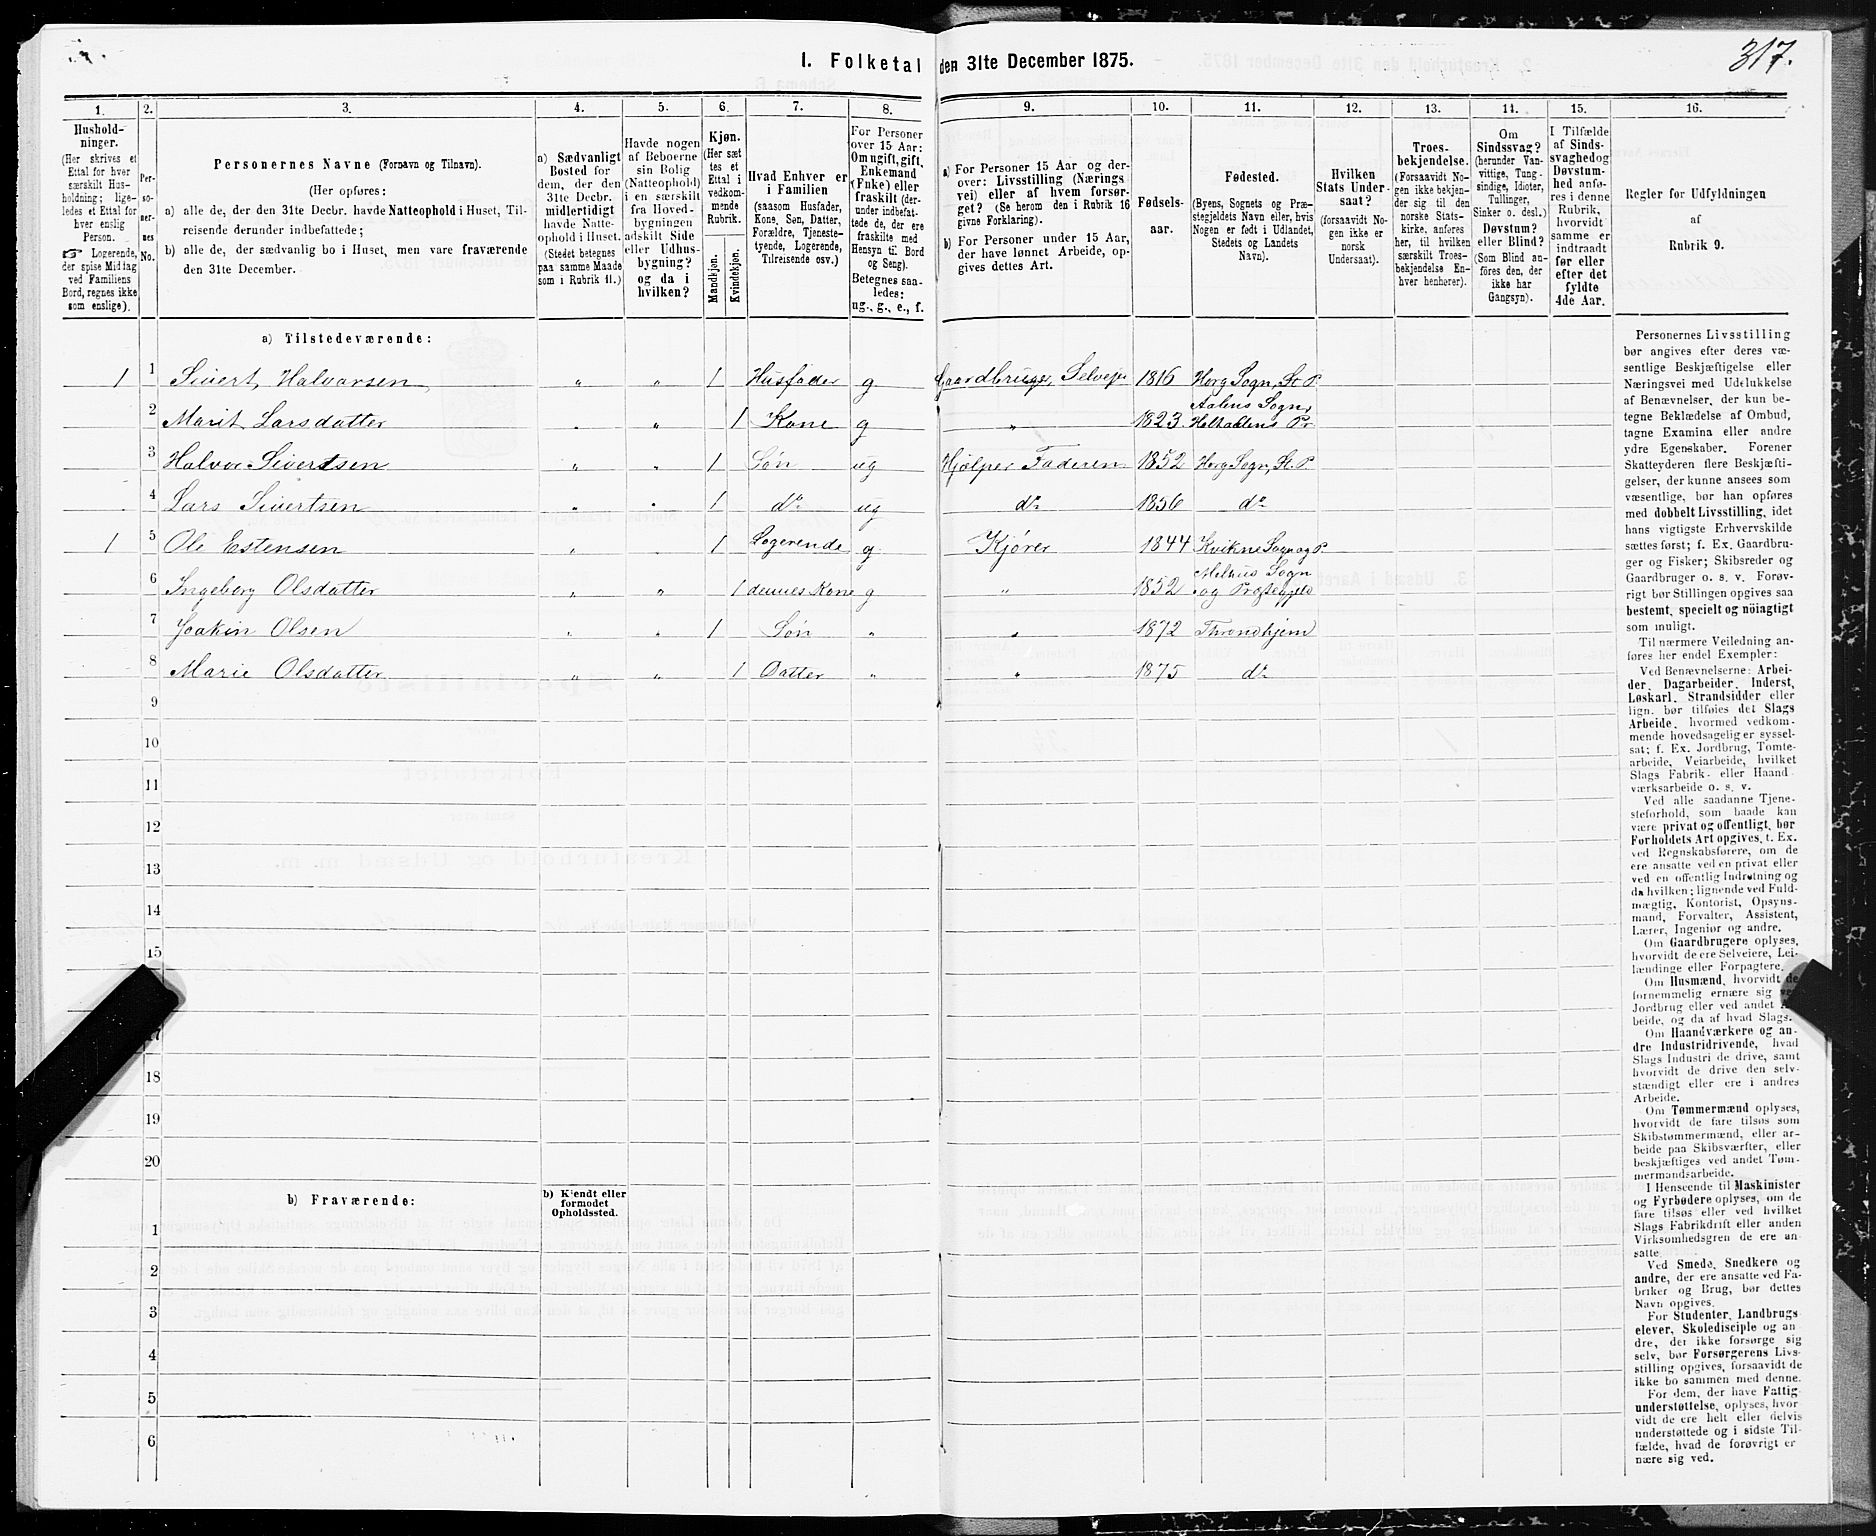 317.
I. Folketal den 31te December 1875.
1. 2. 3. 4. 5. 6. 7. 8. 9. 10. 11. 12. 13. 14. 15. 16.
Hushold-
ninger.
(Her skrives et
Ettal for hver
særskilt Hus-
holdning; lige-
ledes et Ettal for
hver enslig
Person.
☞ Logerende,
der spise Middag
ved Familiens
Bord, regnes ikke
som enslige).
Per-
so-
ner-
nes
No.
Personernes Navne (Fornavn og Tilnavn).
(Her opføres:
a) alle de, der den 31te Decbr. havde Natteophold i Huset, Til-
reisende derunder indbefattede;
b) alle de, der sædvanlig bo i Huset, men vare fraværende
den 31te December.
a) Sædvanligt
Bosted for
dem, der den
31te Decbr.
midlertidigt
havde Natte-
ophold i Huset.
(Stedet betegnes
paa samme Maade
som i Rubrik 11.)
Havde nogen
af Beboerne
sin Bolig
(Natteophold)
i en særskilt
fra Hoved-
bygningen
adskilt Side
eller Udhus-
bygning?
og da i
hvilken?
Kjøn.
(Her sæt
tes et
Ettal i
vedkom-
mende
Rubrik.
Mandkjøn.
Kvindekjøn.
Hvad Enhver er
i Familien
(saasom Husfader,
Kone, Søn, Datter,
Forældre, Tjeneste-
tyende, Logerende,
Tilreisende osv.)
For Personer
over 15 Aar:
Om ugift, gift,
Enkemand
(Enke) eller
fraskilt (der-
under indbefat-
tede de, der ere
fraskilte med
Hensyn til Bord
og Seng).
Betegnes saa-
ledes:
ug., g., e., f.
a) For Personer 15 Aar og der-
over: Livsstilling (Nærings
vei) eller af hvem forsør-
get? (Se herom den i Rubrik 16
givne Forklaring).
b) For Personer under 15 Aar,
der have lønnet Arbeide, op-
gives dettes Art.
Fødsels-
aar.
Fødested.
(Byens, Sognets og Præ-
stegjeldets Navn eller, hvis
Nogen er født i Udlandet,
Stedets og Landets
Navn).
Hvilken
Stats Under-
saat?
(forsaavidt No-
gen ikke er
norsk
Undersaat).
Troes-
bekjendelse.
(Forsaavidt No-
gen ikke bekjen-
der sig til den
norske Stats-
kirke, anføres
her, til hvilken
særskilt Troes-
bekjendelse En-
hver henhører).
Om
Sindssvag?
(herunder Van-
vittige, Tung-
sindige, Idioter,
Tullinger,
Sinker o. desl.)
Døvstum?
eller Blind?
(Som Blind an-
føres den, der
ikke har
Gangsyn).
I Tilfælde
af Sinds-
svaghed og
Døvstum-
hed anfø-
res i denne
Rubrik,
hvorvidt
samme er
indtraadt
før eller
efter det
fyldte
4de Aar.
Regler for Udfyldningen
af
Rubrik 9.
a) Tilstedeværende:
1 1 Sivert Halvarsen „ „ 1 Husfader g Gaardbruger, Selveier 1816 Horg Sogn, St. P.
2 Marit Larsdatter „ „ 1 Kone g „ 1823 Aalens Sogn, Holtaalens Pr
3 Halvor Sivertsen „ „ 1 Søn ug Hjælper Faderen 1852 Horg Sogn, St. P
4 Lars Sivertsen „ „ 1 do ug do 1856 do
1 5 Ole Estensen „ „ 1 Logerende g Kjører 1844 Kvikne Sogn og P.
6 Ingeborg Olsdatter „ „ 1 dennes Kone g „ 1852 Melhus Sogn og Præstegjeld
7 Joakin Olsen „ „ 1 Søn „ „ 1872 Throndhjem
8 Marie Olsdatter „ „ 1 Datter „ „ 1875 do
9
10
11
12
13
14
15
17
18
19
20
b) Fraværende:
b) Kjendt eller
formodet
Opholdssted.
1
2
3
4
5
6
Personernes Livsstilling
bør angives efter deres væ-
sentlige Beskjæftigelse eller
Næringsvei med Udelukkelse
af Benævnelser, der kun be-
tegne Beklædelse af Ombud,
tagne Examina eller andre
ydre Egenskaber. Forener
Skatteyderen flere Beskjæfti-
gelser, der kunne ansees som
væsentlige, bør han opføres
med dobbelt Livsstilling, idet
hans vigtigste Erhvervskilde
sættes først; f. Ex. Gaardbru-
ger og Fisker; Skibsreder og
Gaardbruger o. s. v. Forøv-
rigt bør Stillingen opgives saa
bestemt, specielt og nöiagtigt
som muligt.
Til nærmere Veiledning an-
føres her endel Exempler:
Ved Benævnelserne: Arbei-
der, Dagarbeider, Inderst,
Løskarl, Strandsidder eller
lign. bør tilføies det Slags
Arbeide, hvormed vedkom-
mende hovedsagelig er syssel-
sat; f. Ex. Jordbrug, Tomte-
arbeide, Veiarbeide, hvilket
Slags Fabrik- eller Haand
værksarbeide o. s. v.
Ved alle saadanne Tjene-
steforhold, som baade kan
være privat og offentligt, bør
Forholdets Art opgives, t. Ex.
ved Regnskabsførere, om de
ere ansatte ved en privat eller
ved en offentlig Indretning og
da hvilken; lignende ved Fuld-
mægtig, Kontorist, Opsyns-
mand, Forvalter, Assistent,
Lærer, Ingeniør og andre.
Om Gaardbrugere oplyses,
hvorvidt de ere Selveiere, Lei-
lændinge eller Forpagtere.
Om Husmænd, hvorvidt de
fornemmelig ernære sig ved
Jordbrug eller ved andet Ar-
beide, og da af hvad Slags.
Om Haandværkere og an-
dre Industridrivende, hvad
Slags Industri de drive, samt
hvorvidt de drive den selv-
stændigt eller ere i andres
Arbeide.
Om Tømmermænd oplyses,
hvorvidt de fare tilsøs som
Skibstømmermænd, eller ar-
beide paa Skibsværfter, eller
beskjæftiges ved andet Tøm-
mermandsarbeide.
I Henseende til Maskinister
og Fyrbødere oplyses, om de
fare tilsøs eller ved hvilket
Slags Fabrikdrift eller anden
Virksomhedsgren de ere an-
satte.
Ved Smede, Snedkere og
andre, der ere ansatte ved Fa-
briker og Brug, bør dettes
Navn opgives.
For Studenter, Landbrugs-
elever, Skoledisciple og an-
dre, der ikke forsørge sig
selv, bør Forsørgerens Livs-
stilling opgives, forsaavidt de
ikke bo sammen med denne.
For dem, der have Fattig-
understøttelse, oplyses, hvor
vidt de ere helt eller delvis
understøttede og i sidste Til-
fælde, hvad de forøvrigt er
nære sig ved.